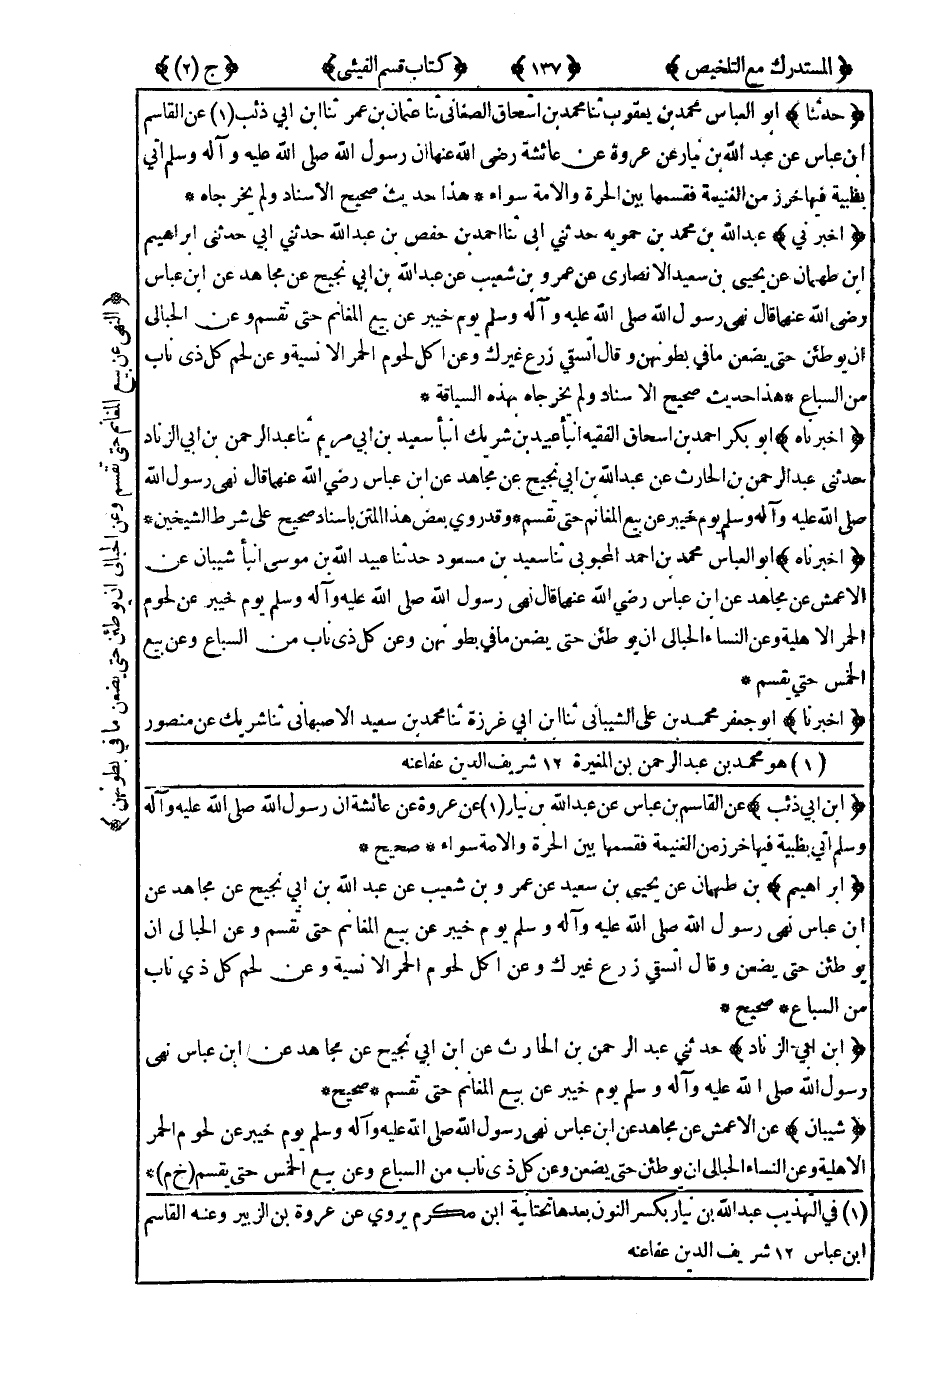 ﴿ المستدرك مع التلخيص ﴾ ﴿ ١٣٧ ﴾ ﴿ كتاب قسم الفيئى ﴾ ﴿ ج (٢) ﴾
﴿ حدثنا ﴾ ابو العباس محمد بن يعقوب ثنا محمد بن اسحاق الصغانى ثنا عثمان بن عمر ثنا ابن ابي ذئب (١) عن القاسم
ابن عباس عن عبد الله بن نيار عن عروة عن عائشة رضى الله عنها ان رسول الله صلى الله عليه و آله وسلم اتي
بظبية فيها خرز من الغنيمة فقسمها بين الحرة والامة سواء * هذا حديث صحيح الاسناد ولم يخرجاه *
﴿ اخبرني ﴾ عبد الله بن محمد بن حمويه حدثني ابى ثنا احمد بن حفص بن عبد الله حدثني ابي حدثنى ابراهيم
ابن طهمان عن يحيى بن سعيد الانصارى عن عمرو بن شعيب عن عبد الله بن ابي نجيح عن مجاهد عن ابن عباس
رضى الله عنهما قال نهى رسول الله صلى الله عليه و آله وسلم يوم خيبر عن بيع المغانم حتى تقسم وعن الحبالى
ان يوطئن حتى يضعن مافي بطونهن و قال أتسقي زرع غيرك وعن اكل لحوم الحمر الانسية وعن لحم كل ذى ناب
من السباع * هذا حديث صحيح الاسناد ولم يخرجاه بهذه السياقة *
﴿ اخبرناه ﴾ ابو بكر احمد بن اسحاق الفقيه انبأ عبيد بن شريك انبأ سعيد بن ابي مريم ثنا عبد الرحمن بن ابي الزناد
حدثنى عبد الرحمن بن الحارث عن عبد الله بن ابي نجيح عن مجاهد عن ابن عباس رضي الله عنهما قال نهى رسول الله
صلى الله عليه و آله وسلم يوم خيبر عن بيع المغانم حتى تقسم * وقد روي بعض هذا المتن باسناد صحيح على شرط الشيخين *
﴿ اخبرناه ﴾ ابو العباس محمد بن احمد المحبوبي ثنا سعيد بن مسعود حدثنا عبيد الله بن موسى انبأ شيبان عن
الاعمش عن مجاهد عن ابن عباس رضي الله عنهما قال نهى رسول الله صلى الله عليه وآله وسلم يوم خيبر عن لحوم
الحمر الاهلية وعن النساء الحبالى ان يوطئن حتى يضعن مافي بطونهن وعن كل ذى ناب من السباع وعن بيع
الخمس حتي يقسم *
﴿ اخبرنا ﴾ ابو جعفر محمد بن على الشيبانى ثنا ابن ابي غرزة ثنا محمد بن سعيد الاصبهانى ثنا شريك عن منصور
(١) هو محمد بن عبد الرحمن بن المغيرة ١٢ شريف الدين عفا عنه
﴿ ابن ابي ذئب ﴾ عن القاسم بن عباس عن عبد الله بن نيار (١) عن عروة عن عائشة ان رسول الله صلى الله عليه وآله
وسلم اتي بظبية فيها خرز من الغنيمة فقسمها بين الحرة والامة سواء * صحيح *
﴿ ابراهيم ﴾ بن طهمان عن يحيى بن سعيد عن عمرو بن شعيب عن عبد الله بن ابي نجيح عن مجاهد عن
ابن عباس نهى رسول الله صلى الله عليه وآله وسلم يوم خيبر عن بيع المغانم حتى تقسم وعن الحبالى ان
يوطئن حتى يضعن وقال أتسقي زرع غيرك وعن اكل لحوم الحمر الانسية وعن لحم كل ذي ناب
من السباع * صحيح *
﴿ ابن ابي الزناد ﴾ حدثني عبد الرحمن بن الحارث عن ابن ابي نجيح عن مجاهد عن ابن عباس نهى
رسول الله صلى الله عليه وآله وسلم يوم خيبر عن بيع المغانم حتى تقسم * صحيح *
﴿ شيبان ﴾ عن الاعمش عن مجاهد عن ابن عباس نهى رسول الله صلى الله عليه وآله وسلم يوم خيبر عن لحوم الحمر
الاهلية وعن النساء الحبالى ان يوطئن حتى يضعن وعن كل ذى ناب من السباع وعن بيع الخمس حتى يقسم (خ م) *
(١) في التهذيب عبد الله بن نيار بكسر النون بعدها تحتانية ابن مكرم يروي عن عروة بن الزبير وعنه القاسم
ابن عباس ١٢ شريف الدين عفا عنه
﴿ النهى عن بيع المغانم حتى تقسم وعن الحبالى ان يوطئن حتى يضعن ما في بطونهن ﴾